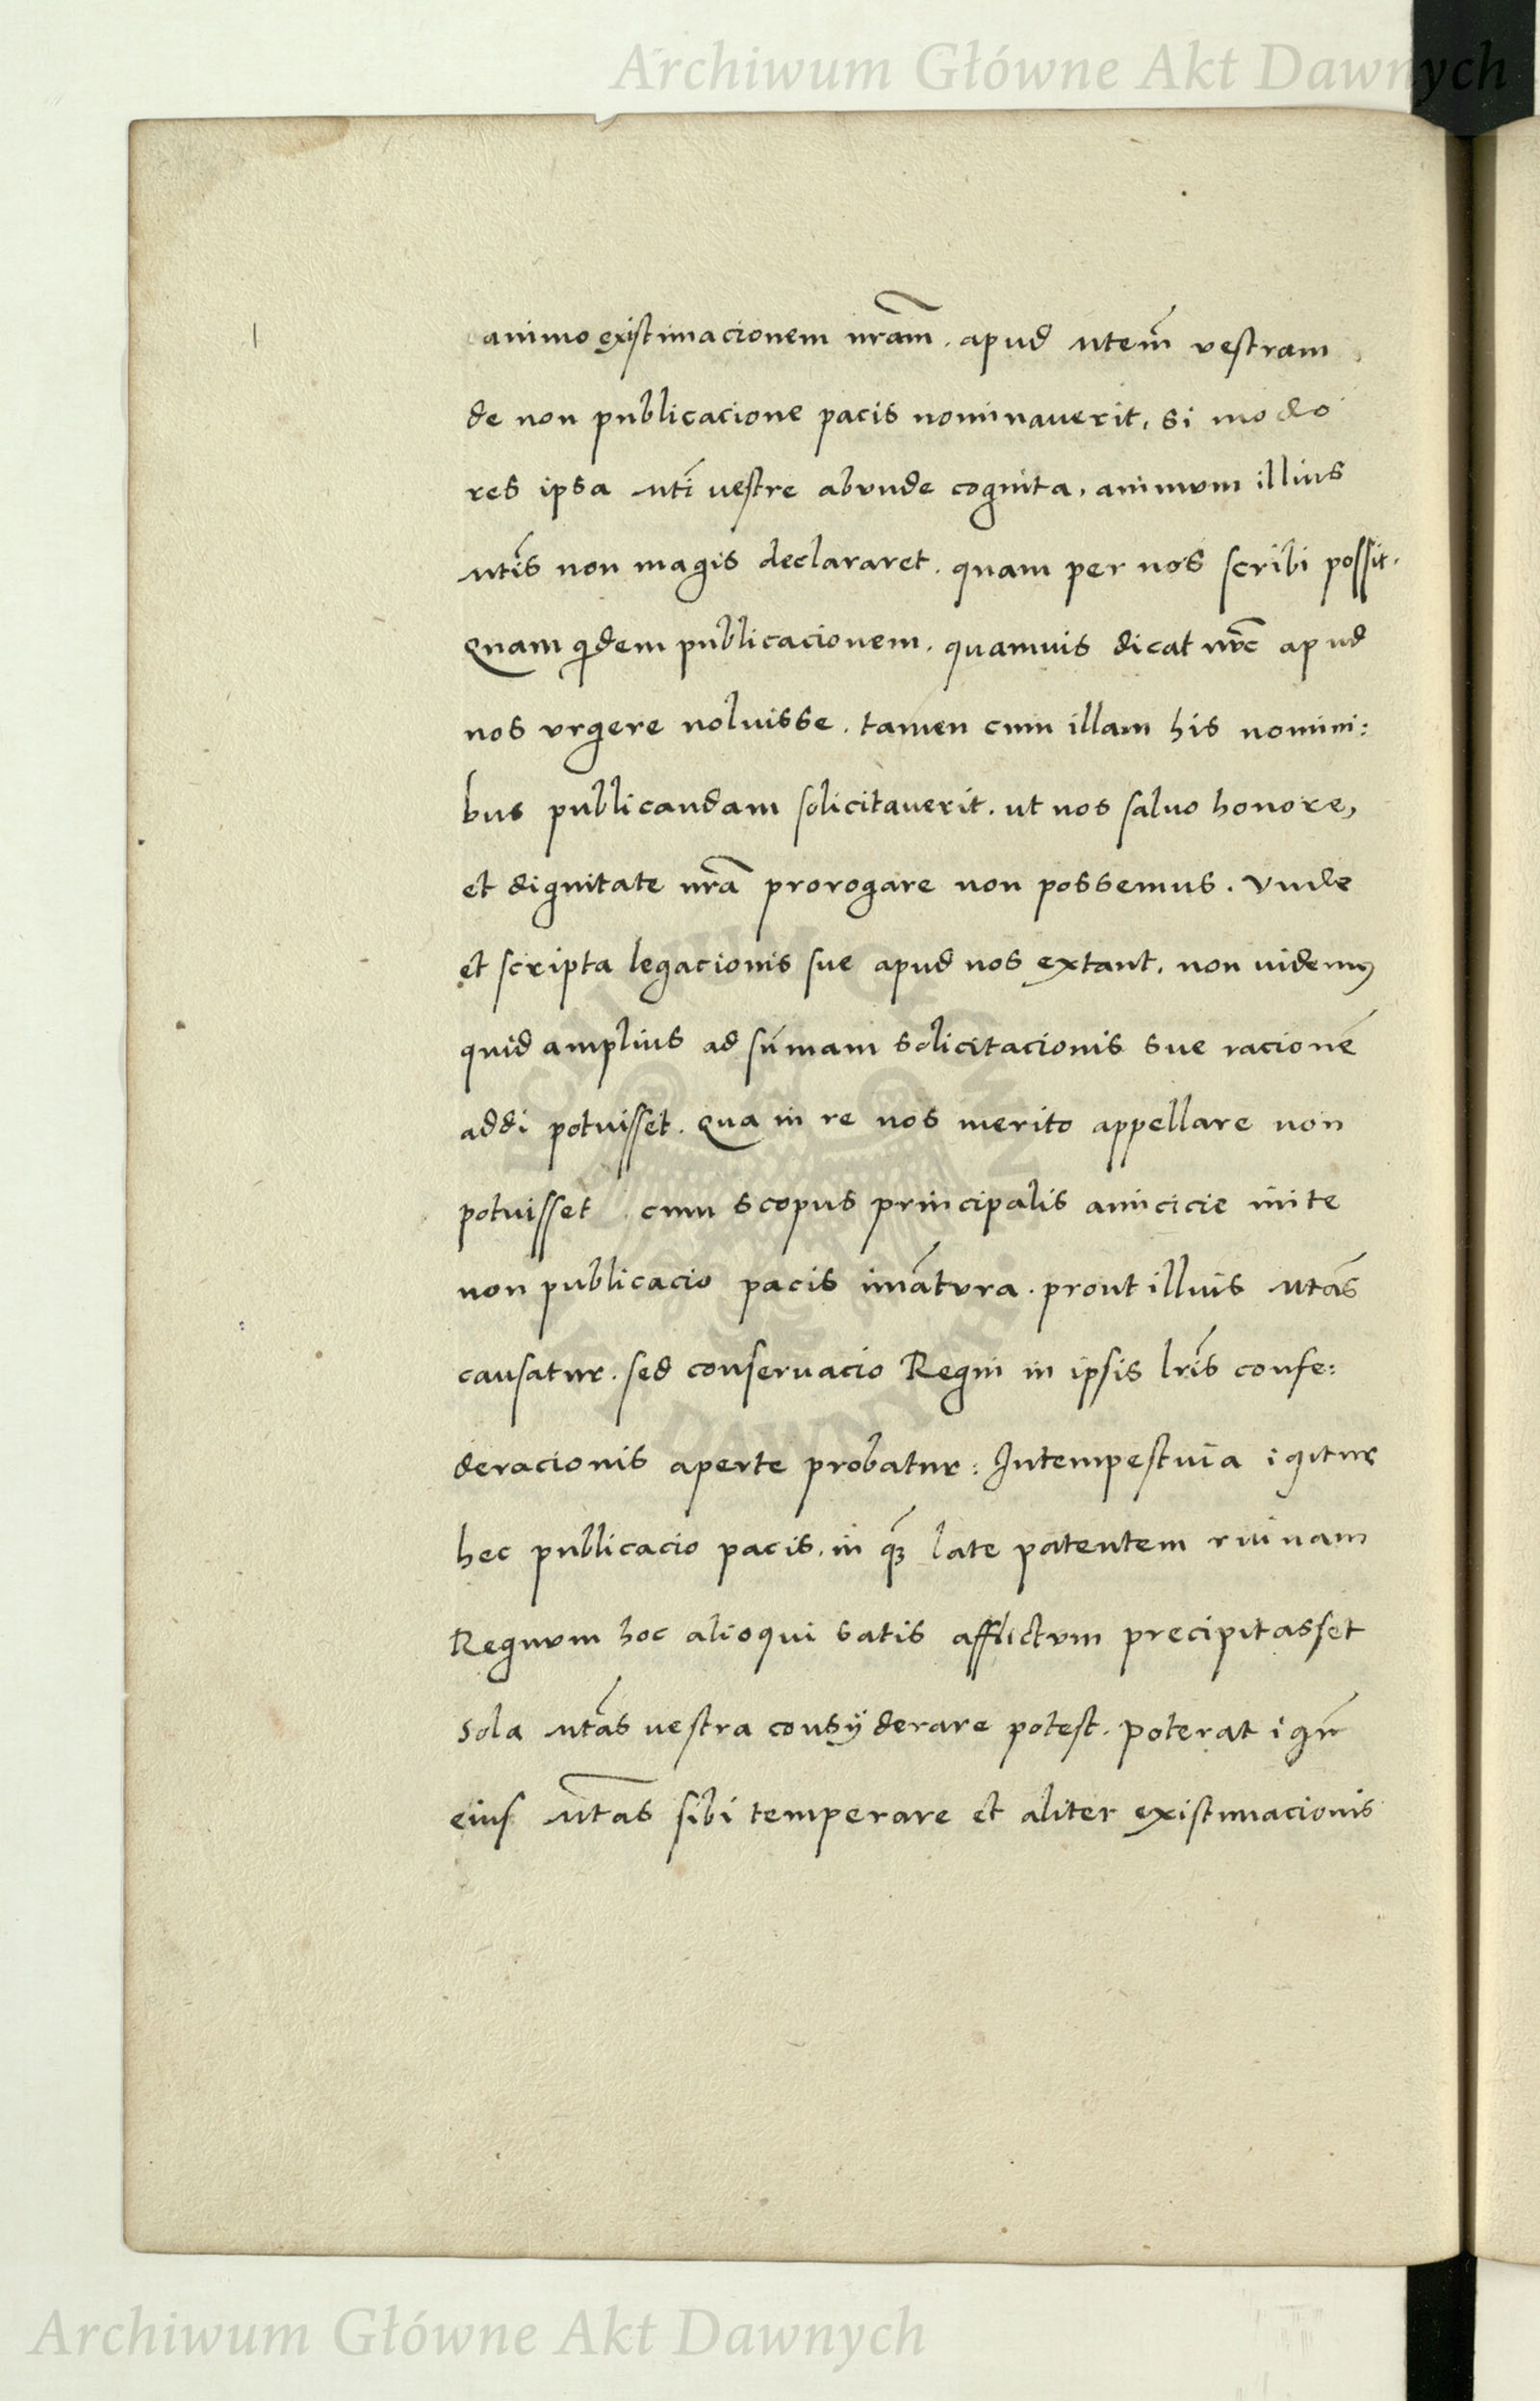 Archiwum Główne Akt Dawnych
animo existimacionem nr̃am. apud Mtem̃ vestram
de non publicacione pacis nominauerit, si modo
res ipsa Mti uestre abvnde cognita, animvm illius
Mtis non magis declararet. quam per nos scribi possit.
Quam qidem publicacionem. quamuis dicat apud
nos vrgere noluisse. tamen cum illam his nomini:
bus publicandam solicitauerit. ut nos saluo honore,
et dignitate nr̃a prorogare non possemus. Vnde
et scripta legacionis sue apud nos extant, non uidemus
quid amplius ad sũmam solicitacionis sue racionẽ
addi potuisset. Qua in re nos merito appellare non
potuisset. cum scopus principalis amicicie inite
non publicacio pacis im̃atvra. prout illius Mtãs
causatur. sed conseruacio Regni in ipsis lr̃is confe:
deracionis aperte probatur: Intempestiua igitur
hec publicacio pacis. in late patentem ruinam
Regnvm hoc alioqui satis afflictvm precipitasset
Sola Mtãs uestra consÿderare potest. Poterat igr̃
eius Mtãs sibi temperare et aliter existimacionis
Archiwum Główne Akt Dawnych